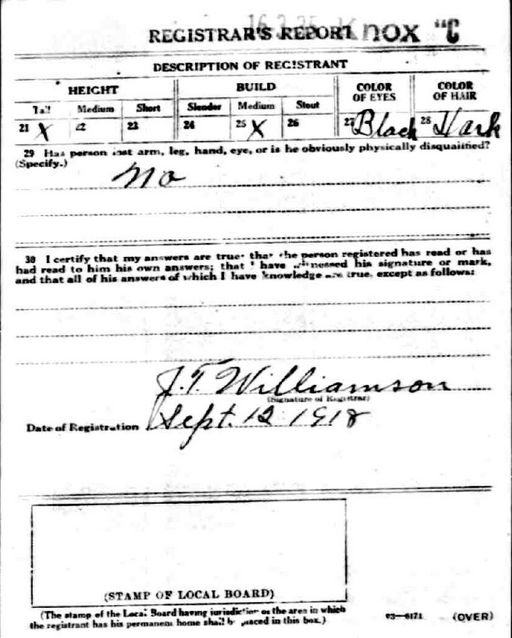 16 3 35 Knox "C
REGISTRAR'S REPORT
DESCRIPTION OF REGISTRANT
HEIGHT BUILD COLOR OF EYES COLOR OF HAIR
Tall Medium Short Slender Medium Stout
21 X 22 23 24 25 X 26 27 Black 28 Dark
29 Has person lost arm, leg, hand, eye, or is he obviously physically disqualified?
(Specify.)
No
30 I certify that my answers are true; that the person registered has read or has
had read to him his own answers; that I have witnessed his signature or mark,
and that all of his answers of which I have knowledge are true, except as follows:
J. T. Williamson
(Signature of Registrar)
Date of Registration Sept. 12 1918
(STAMP OF LOCAL BOARD)
(The stamp of the Local Board having jurisdiction of the area in which
the registrant has his permanent home shall be placed in this box.)
03—6171 (OVER)